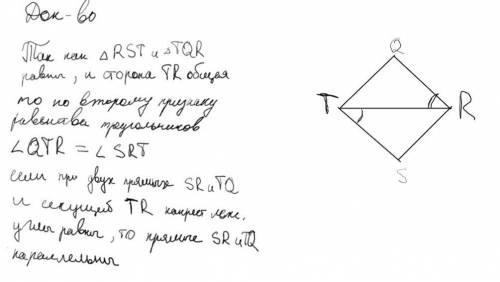 Док-во
Так как △RST и △TQR
равны, и сторона TR общая
то по второму признаку
равенства треугольников
∠QTR = ∠SRT
если при двух прямых SR и TQ
и секущей TR накрест леж.
углы равны, то прямые SR и TQ
параллельны
Q
T
R
S